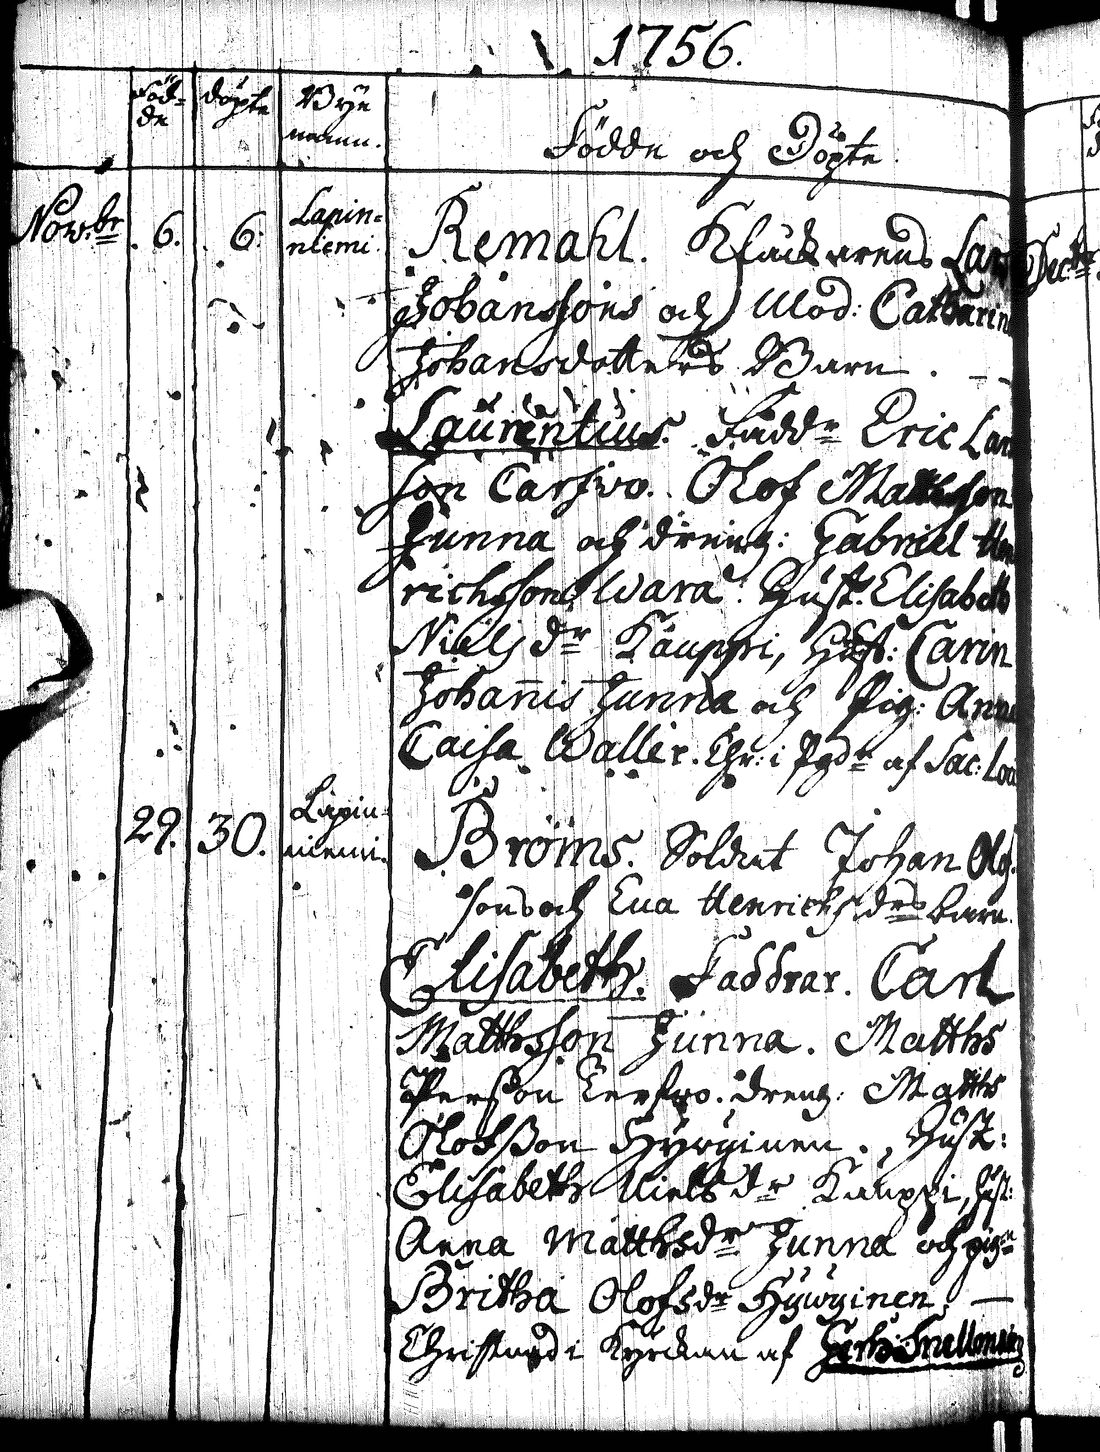 1756.
Föd-
de
döpte
Byje
namn.
Födde och Döpte.
Novbr 6. 6. Lapin-
niemi.
Remahl. Kläckarens Lars
Johanssons och Mod: Catharina
Johansdotters Barn. —
Laurentius. Faddr Eric Lars
son Carfvo. Olof Mattsson
Junna och dreng: Gabriel Hen
richsson Wara. Hust. Elisabeth
Niels dr Kauppi, Hust: Carin
Johannis Junna och Pig: Anna
Caisa Waller. Chr: i Pgdn af Sac: 
29. 30. Lapin-
niemi.
Bröms. Soldat Johan Olof-
sons och Eva Henrichsdrs barn.
Elisabeth. Faddrar. Carl
Matthsson Junna. Matths
Person Kerfvo. dreng: Matths
Olofsson Hywyinen, Hust:
Elisabeth Niels dr Kauppi, Hust:
Anna Matthsdr Junna och pign
Britha Olofsdr Hywyinen, —
Christnad i Kyrckan af Snellman